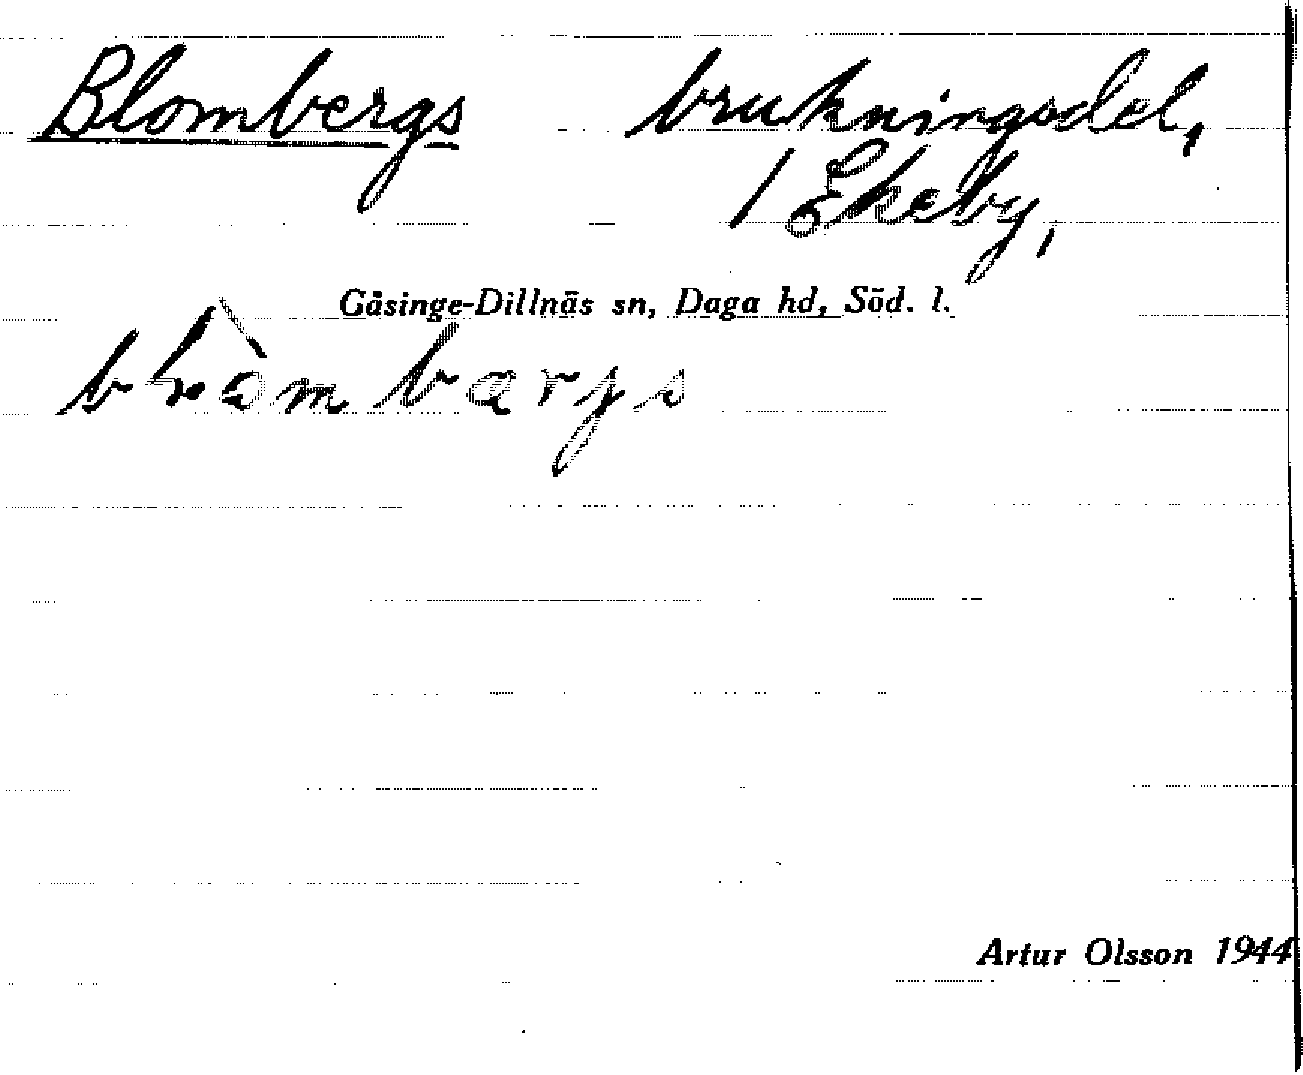 Blombergs brukningsdel,
1 Ekeby,
Gåsinge-Dillnäs sn, Daga hd, Söd. l.
Artur Olsson 1944